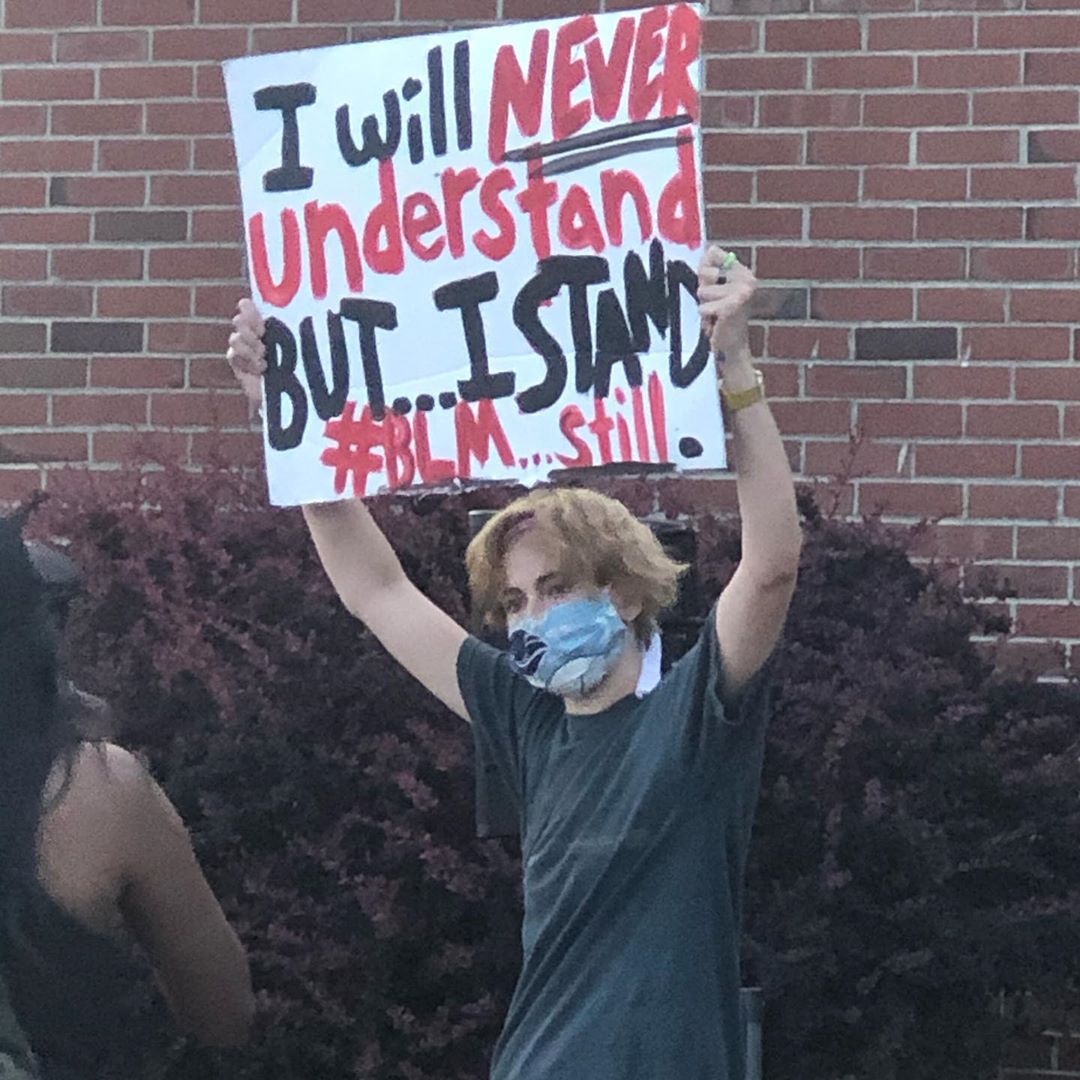 I will NEVER
understand
BUT...I STAND
#BLM...still.